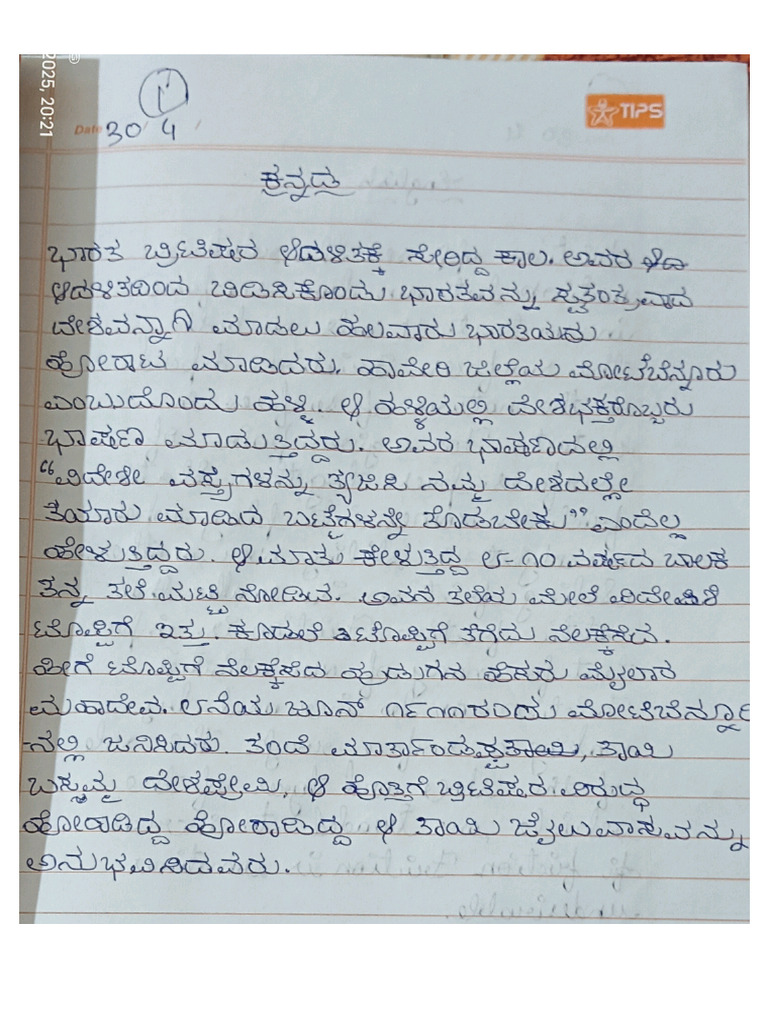 2025, 20:21
1
TIPS
Date 30 4
ಕನ್ನಡ
ಭಾರತ ಬ್ರಿಟಿಷರ ಆಡಳಿತಕ್ಕೆ ಸೇರಿದ್ದ ಕಾಲ. ಅವರ
ಆಡಳಿತದಿಂದ ಬಿಡಿಸಿಕೊಂಡು ಭಾರತವನ್ನು ಸ್ವತಂತ್ರವಾದ
ದೇಶವನ್ನಾಗಿ ಮಾಡಲು ಹಲವಾರು ಭಾರತಿಯರು
ಹೋರಾಟ ಮಾಡಿದರು. ಹಾವೇರಿ ಜಿಲ್ಲೆಯ ಮೋಟೆಬೆನ್ನೂರು
ಎಂಬುದೊಂದು ಹಳ್ಳಿ. ಆ ಹಳ್ಳಿಯಲ್ಲಿ ದೇಶಭಕ್ತರೊಬ್ಬರು
ಭಾಷಣ ಮಾಡುತ್ತಿದ್ದರು. ಅವರ ಭಾಷಣದಲ್ಲಿ
"ವಿದೇಶೀ ವಸ್ತ್ರಗಳನ್ನು ತ್ಯಜಿಸಿ ನಮ್ಮ ದೇಶದಲ್ಲೇ
ತಯಾರು ಮಾಡಿದ ಬಟ್ಟೆಗಳನ್ನೇ ತೊಡಬೇಕು" ಎಂದೆಲ್ಲ
ಹೇಳುತ್ತಿದ್ದರು. ಆ ಮಾತು ಕೇಳುತ್ತಿದ್ದ ೯-೧೦ ವರ್ಷದ ಬಾಲಕ
ತನ್ನ ತಲೆ ಮುಟ್ಟಿ ನೋಡಿದ. ಅವನ ತಲೆಯ ಮೇಲೆ
ಟೊಪ್ಪಿಗೆ ಇತ್ತು. ಕೂಡಲೆ ಆ ಟೊಪ್ಪಿಗೆ ತೆಗೆದು ನೆಲಕ್ಕೆಸೆದ.
ಹೀಗೆ ಟೊಪ್ಪಿಗೆ ನೆಲಕ್ಕೆಸೆದ ಹುಡುಗನ ಹೆಸರು ಮೈಲಾರ
ಮಹಾದೇವ. ೮ನೆಯ ಜೂನ್ ೧೯೧೧ರಂದು ಮೋಟೆಬೆನ್ನೂರಿ
-ನಲ್ಲಿ ಜನಿಸಿದರು. ತಂದೆ ತಾಯಿ
ಬಸ್ಸಮ್ಮ ದೇಶಪ್ರೇಮಿ, ಆ ಹೊತ್ತಿಗೆ ಬ್ರಿಟಿಷರ ವಿರುದ್ಧ
ಹೋರಾಡಿದ್ದ ಹೋರಾಡಿದ್ದ ಆ ತಾಯಿ ಜೈಲುವಾಸವನ್ನು
ಅನುಭವಿಸಿದವರು.